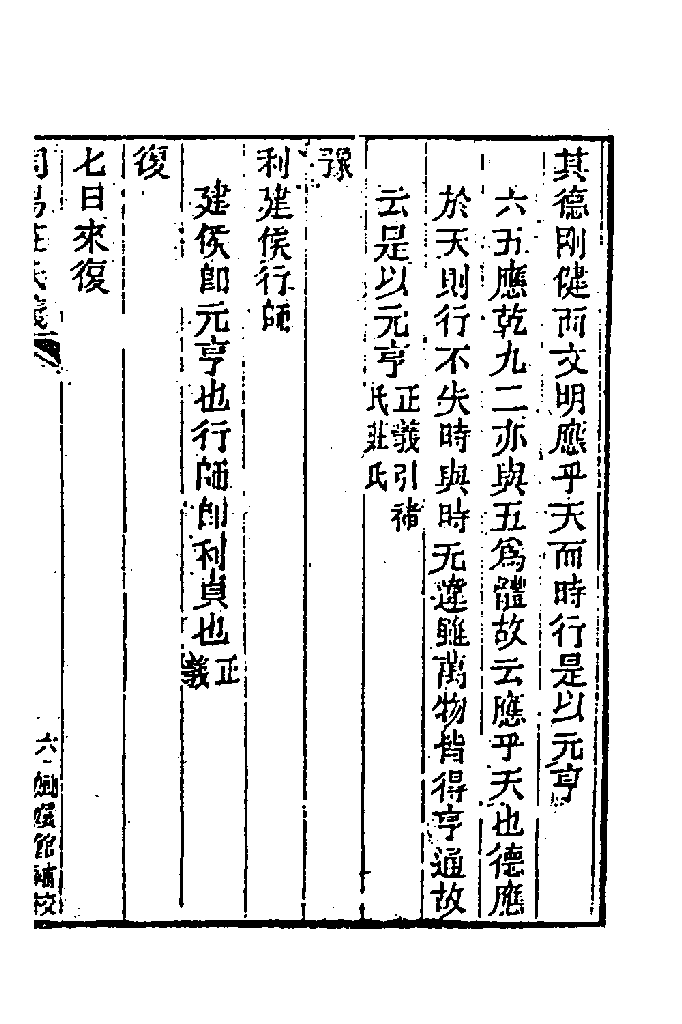 其德剛健而文明應乎天而時行是以元亨
六五應乾九二亦與五爲體故云應乎天也德應
於天則行不失時與時无違雖萬物皆得亨通故
云是以元亨正義引褚氏莊氏
豫
利建侯行師
建侯卽元亨也行師卽利貞也正義
復
七日來復
周易莊氏義
六
嫏嬛館補校